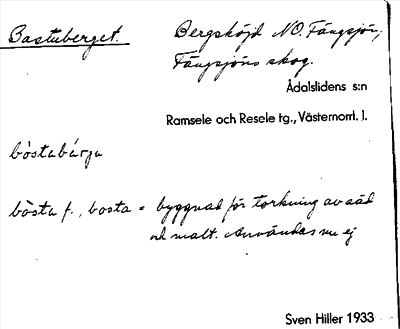 Bastuberget. Bergshöjd NO. Fängsjön,
Fängsjöns skog.
Ådalslidens s:n
Ramsele och Resele tg., Västernorrl. l.
bòstabárjɐ
bòsta f., bosta = byggnad för torkning av säd
och malt. Användas nu ej
Sven Hiller 1933